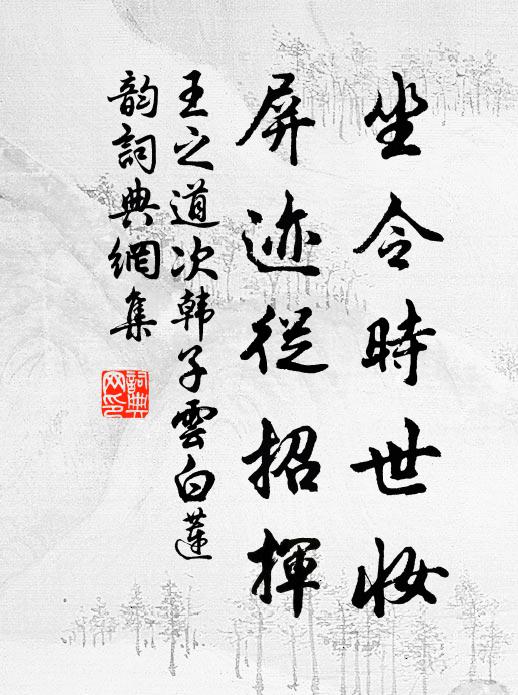 坐令時世妝
屏迹從招揮
王之道次韩子雲白蓮
韵詞典網集
詞典網印